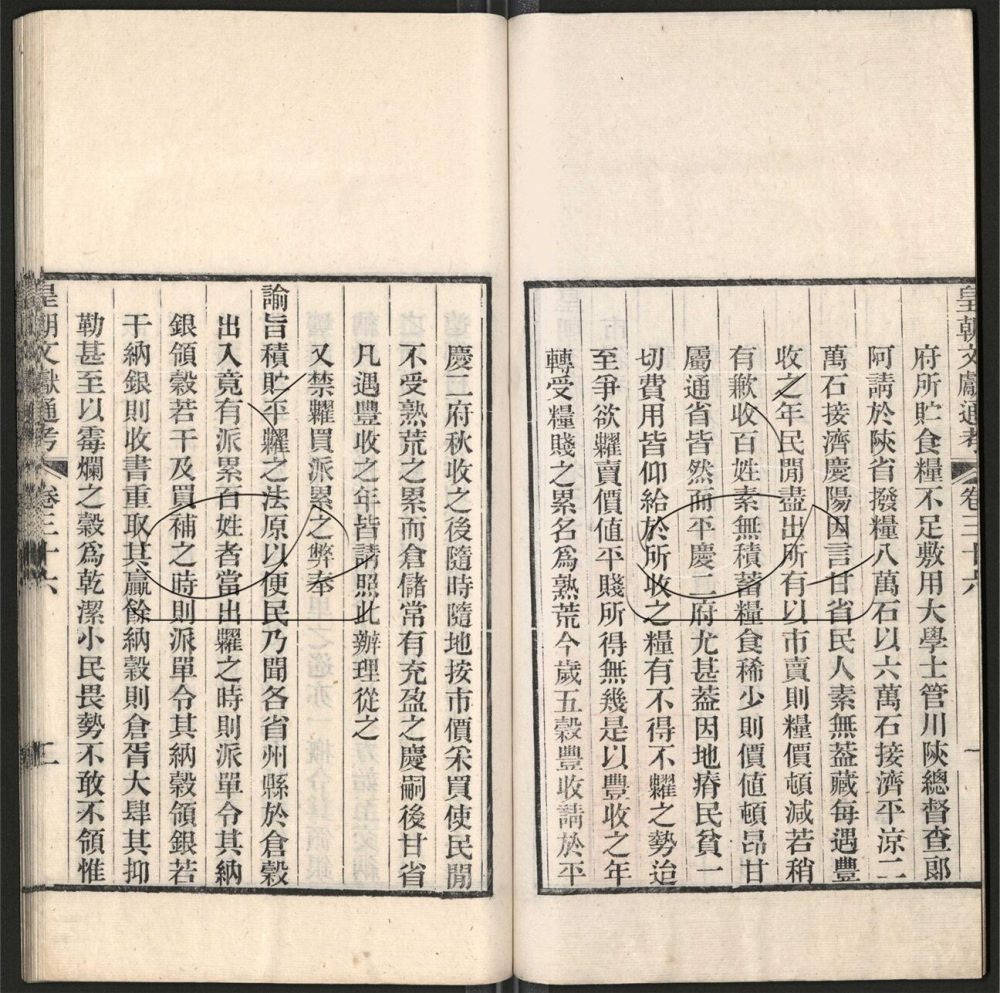 皇朝文獻通考 卷三十六 一
府所貯食糧不足敷用大學士管川陝總督查郎
阿請於陝省撥糧八萬石以六萬石接濟平涼二
萬石接濟慶陽因言甘省民人素無葢藏每遇豐
收之年民閒盡出所有以市賣則糧價頓減若稍
有歉收百姓素無積蓄糧食稀少則價値頓昂甘
屬通省皆然而平慶二府尤甚葢因地瘠民貧一
切費用皆仰給於所收之糧有不得不糶之勢迨
至爭欲糶賣價値平賤所得無幾是以豐收之年
轉受糧賤之累名爲熟荒今歲五穀豐收請於平
慶二府秋收之後隨時隨地按市價采買使民閒
不受熟荒之累而倉儲常有充盈之慶嗣後甘省
凡遇豐收之年皆請照此辦理從之
又禁糶買派累之弊奉
諭旨積貯平糶之法原以便民乃聞各省州縣於倉穀
出入竟有派累百姓者當出糶之時則派單令其納
銀領穀若干及買補之時則派單令其納穀領銀若
干納銀則收書重取其贏餘納穀則倉胥大肆其抑
勒甚至以霉爛之穀爲乾潔小民畏勢不敢不領惟
皇朝文獻通考 卷三十六